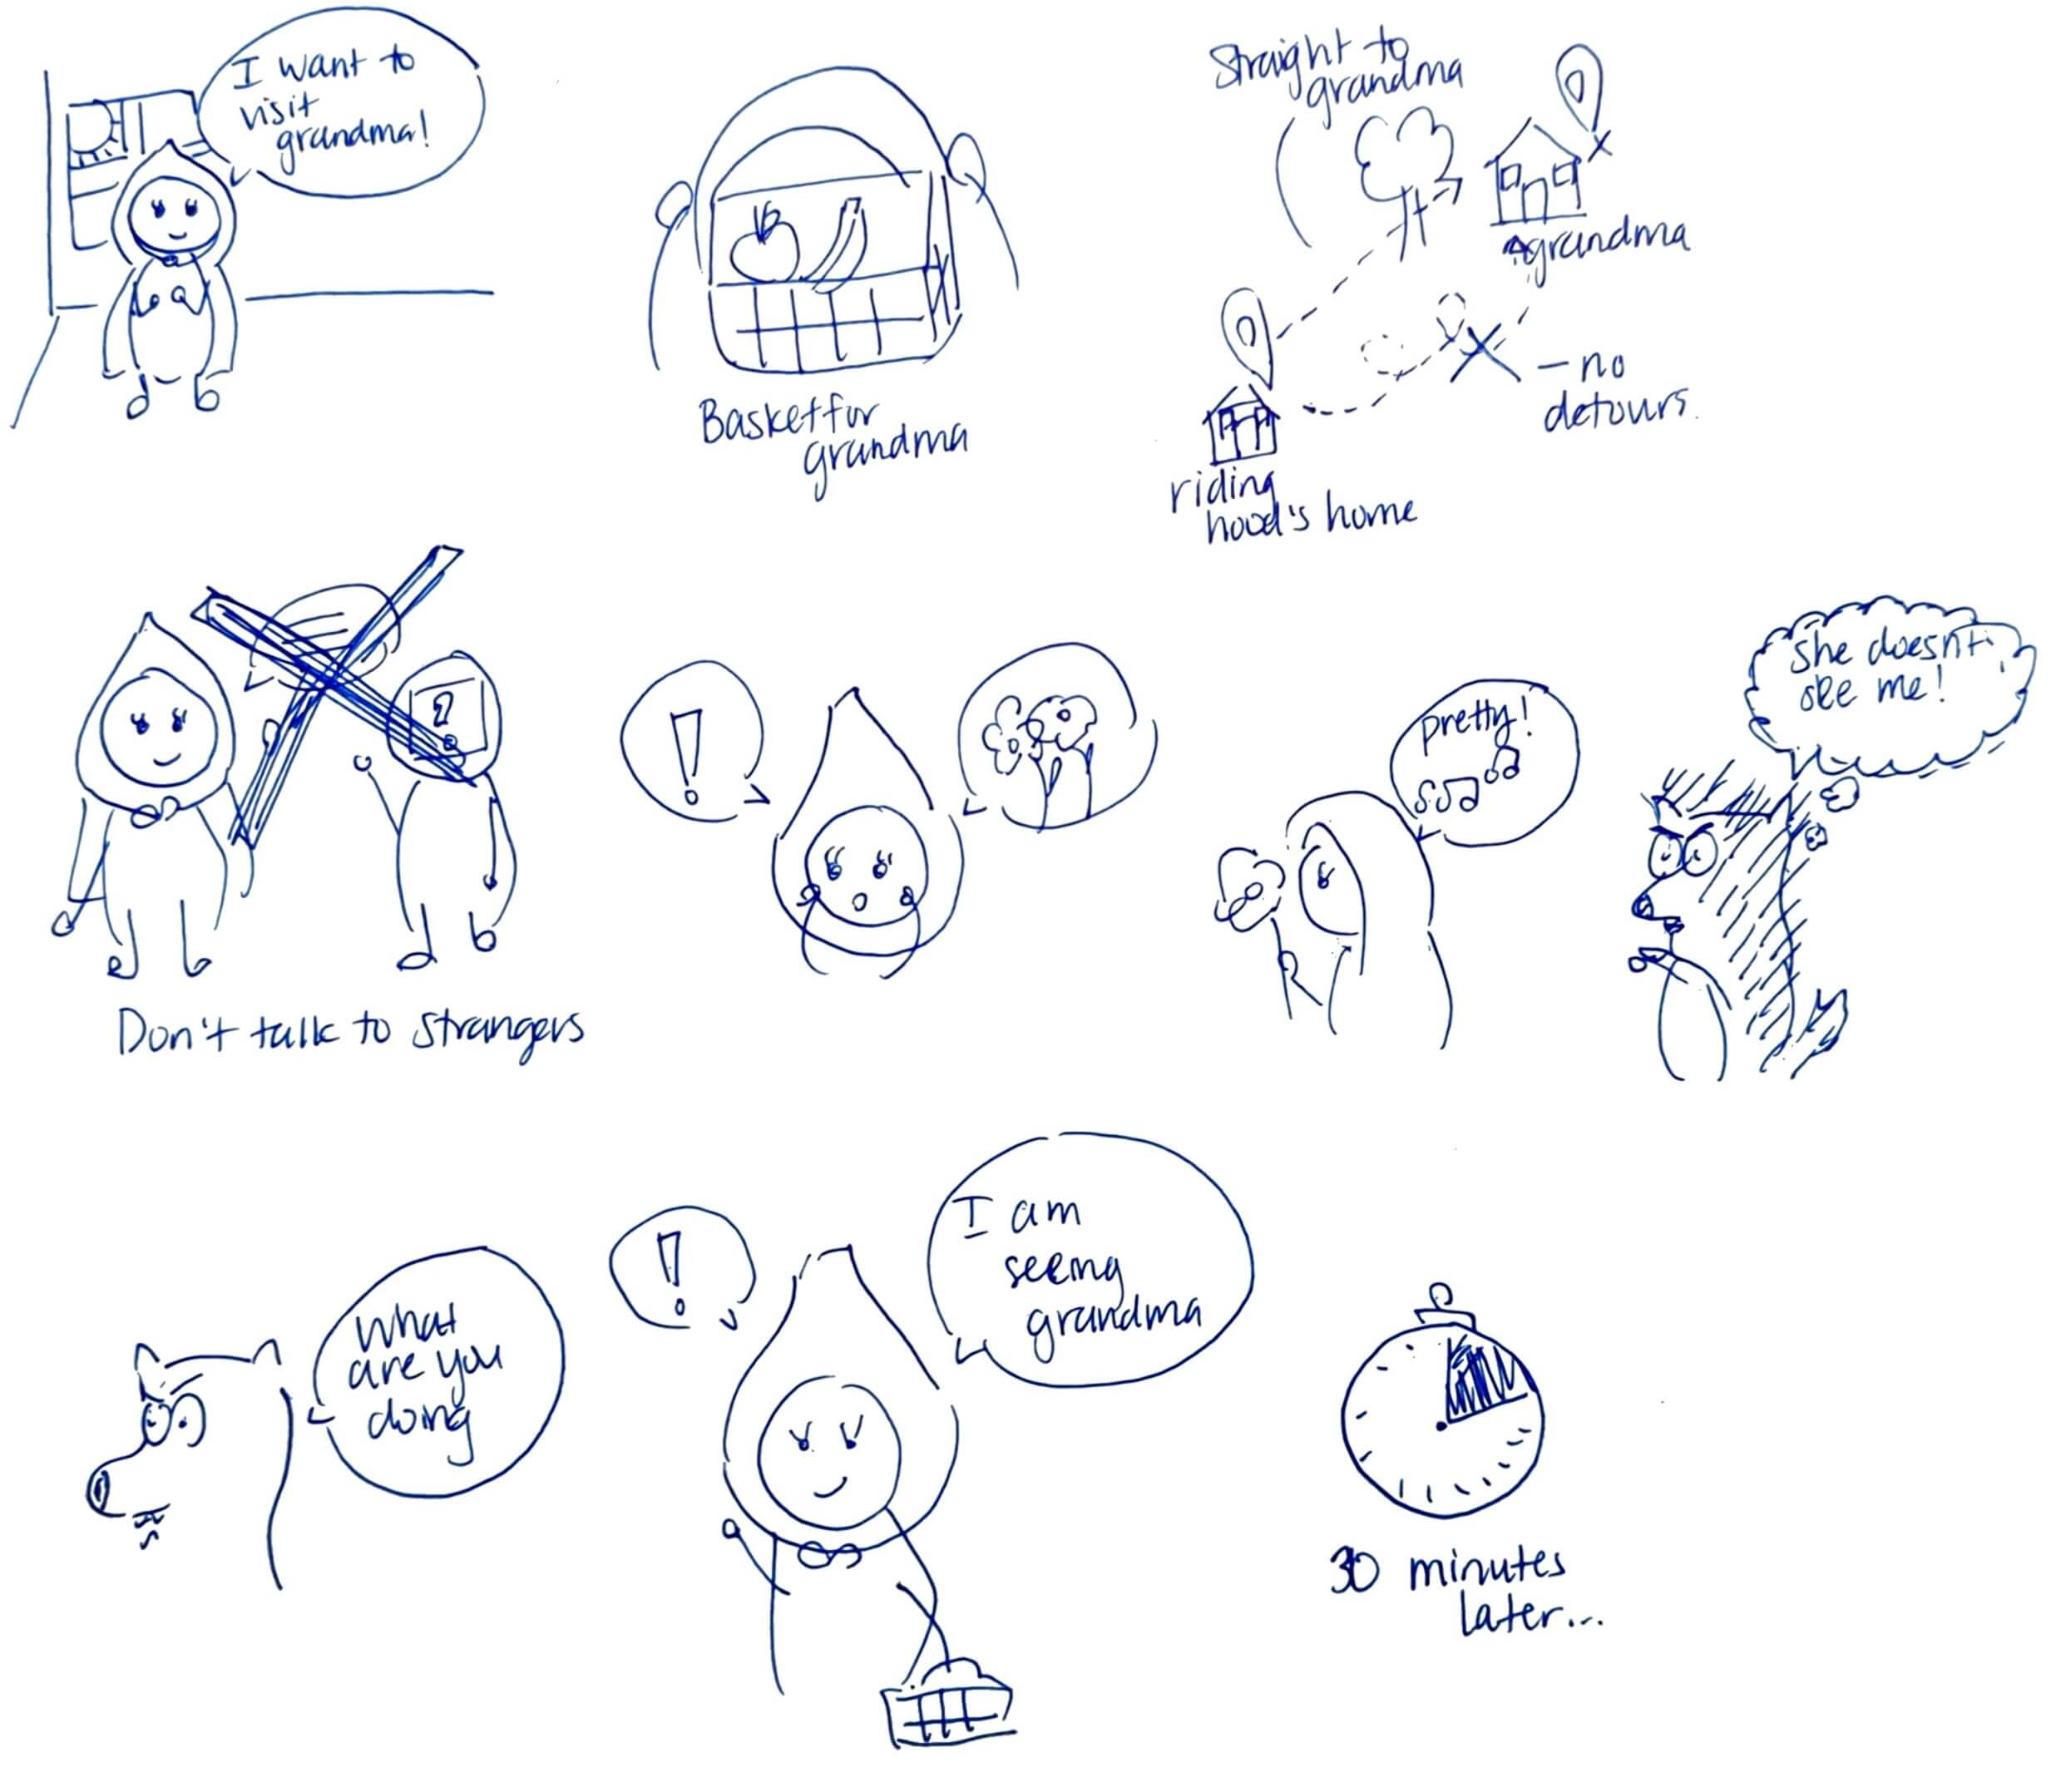 I want to
visit
grandma!
Basket for
grandma
Straight to
grandma
grandma
- no
detours.
riding
hood's home
?
Don't talk to strangers
!
pretty!
She doesn't
see me!
What
are you
doing
!
I am
seeing
grandma
30 minutes
later...